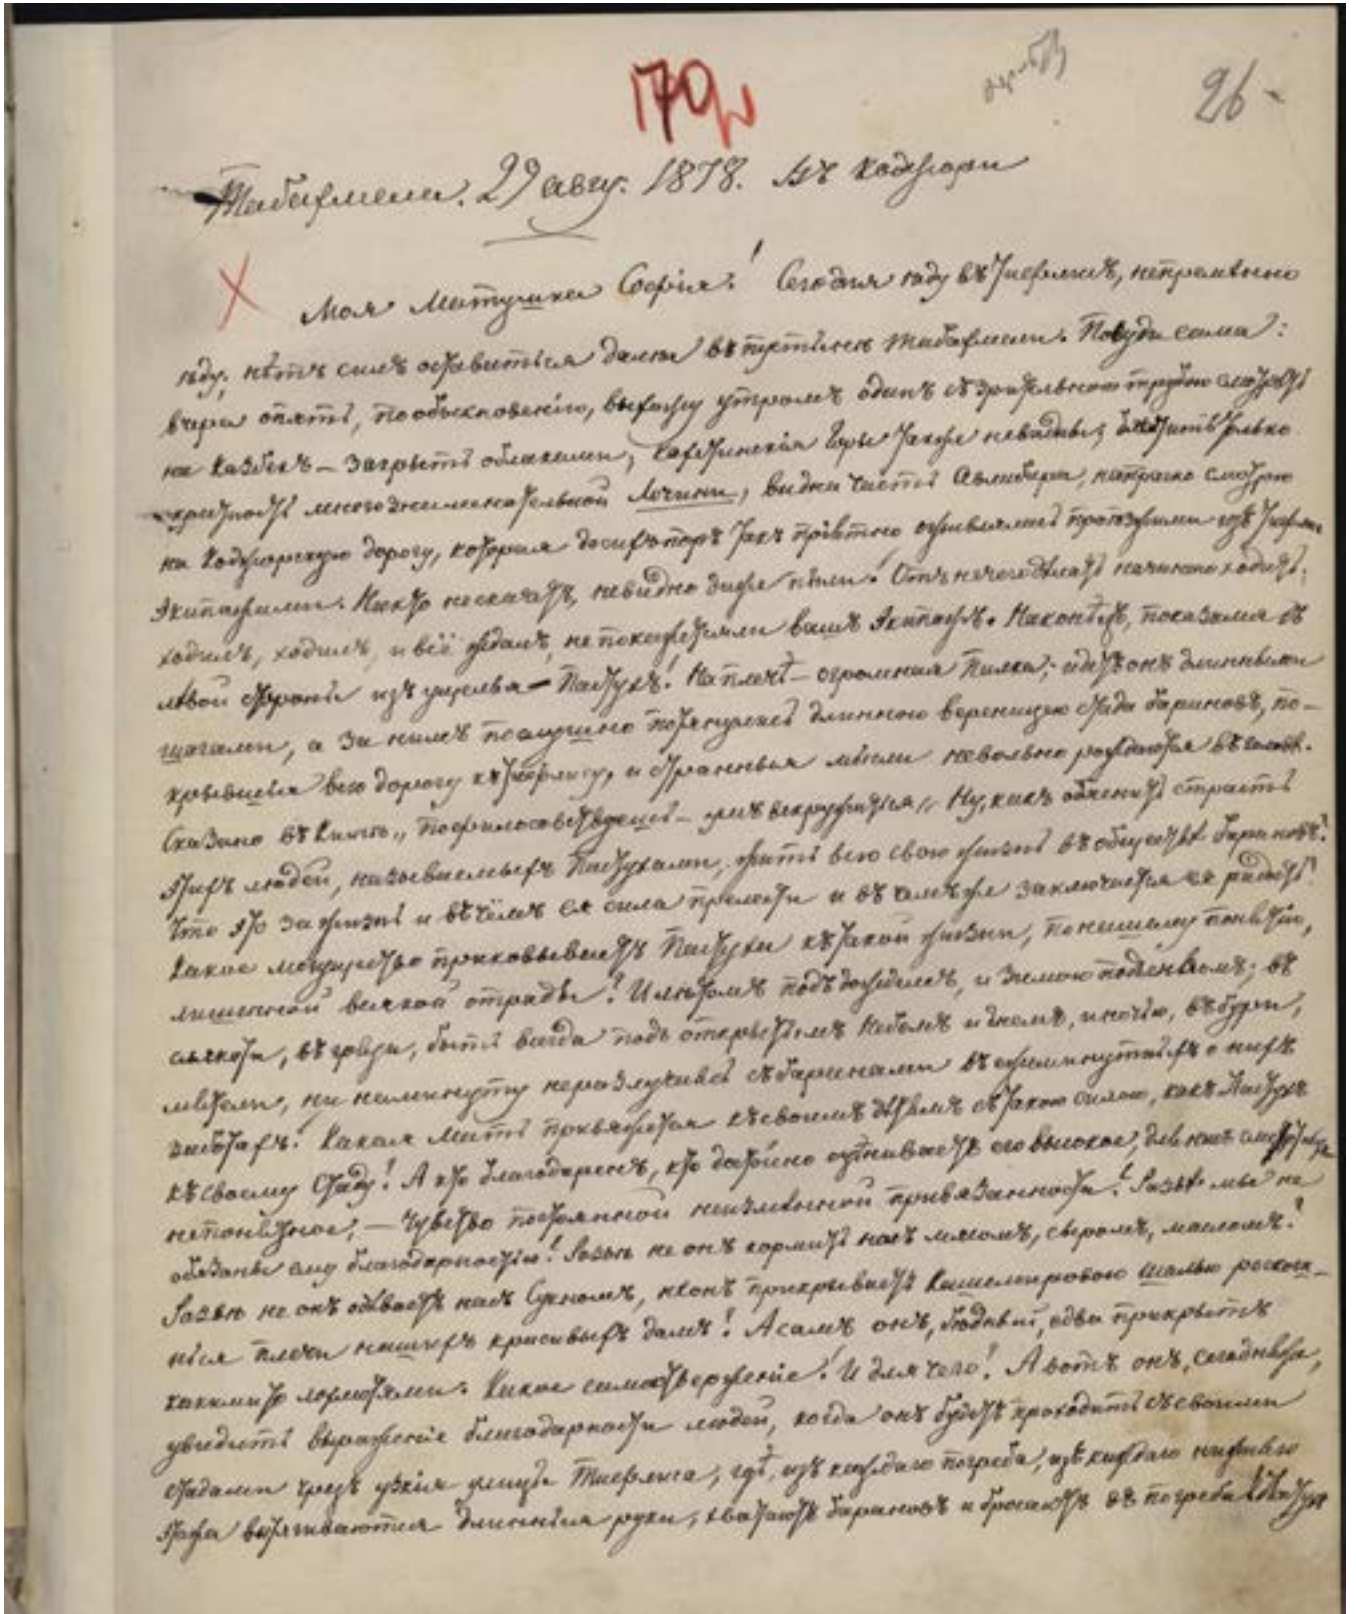 26
Табахмели. 29 авгу. 1878. Въ Коджори
Моя Матушка Софія! Сегодня ѣду въ Тифлисъ, непремѣнно
ѣду; нѣтъ силъ оставиться далѣе въ пустынѣ Табахмели. Посуди сама:
вчера опять, по обыкновенію, выхожу утромъ одинъ съ зрительною трубою смотрѣть
на Казбекъ – закрытъ облаками, Кахетинскія Горы также невидны; только
крѣпость многознаменательной Лочини, видна часть Авлабара, напрасно смотрю
на Коджорскую дорогу, которая досихъ поръ такъ пріятно оживлялась проѣзжими изъ Тифлиса
Экипажами. Никто нескачетъ, невидно даже пыли! Отъ нечего дѣлать начинаю ходить;
ходилъ, ходилъ, и всё ждалъ, не покажетсяли вашъ Экипажъ. Наконецъ, показался въ
лѣвой сторонѣ изъ ущелья – Пастухъ! На плечѣ – огромная Палка; идетъ онъ длинными
шагами, а за нимъ послушно потянулись длинною вереницею стада барановъ, по-
крывшія всю дорогу къ Тифлису, и странныя мысли невольно рождаются въ головѣ.
Сказано въ Книгѣ „Пофилософствуешь – умъ вскружится„ Ну, какъ объяснить страсть
этихъ людей, называемыхъ Пастухами, жить всю свою жизнь въ обществѣ барановъ?
Что это за жизнь и въ чёмъ ея сила прелести и въ чемъ же заключается ея радость?
Какое могущество приковываетъ Пастуха къ такой жизни, по нашему понятію,
лишенной всякой отрады? И лѣтомъ подъ дождемъ, и зимою подъ снѣгомъ; въ
слякоти, въ грязи, быть всегда подъ открытымъ Небомъ и днемъ, и ночью, въ бури,
мятели, ни на минуту неразлучаясь съ баранами въ ежеминутныхъ о нихъ
заботахъ! Какая Мать привяжется къ своимъ дѣтямъ съ такою силою, какъ Пастухъ
къ своему Стаду! А кто благодаренъ, кто достойно оцѣниваетъ его высокое, для насъ
непонятное, – чувство постоянной неизмѣнной привязанности? Развѣ мы не
обязаны ему благодарностію! Развѣ не онъ кормитъ насъ мясомъ, сыромъ, масломъ?
Развѣ не онъ одѣваетъ насъ Сукномъ, неонъ прикрываетъ Кашемировою шалью роскош-
ныя плечи нашихъ красивыхъ дамъ! А самъ онъ, бѣдный, едва прикрытъ
какимито лохмотьями. Какое самоотверженіе! И для чего! А вотъ онъ, сегодня же,
увидитъ выраженіе благодарности людей, когда онъ будетъ проходить съ своими
стадами чрезъ узкія улицы Тифлиса, гдѣ, изъ каждаго погреба, изъ каждаго нижняго
этажа вытягиваются длинныя руки, хватаютъ барановъ и бросаютъ въ погреба